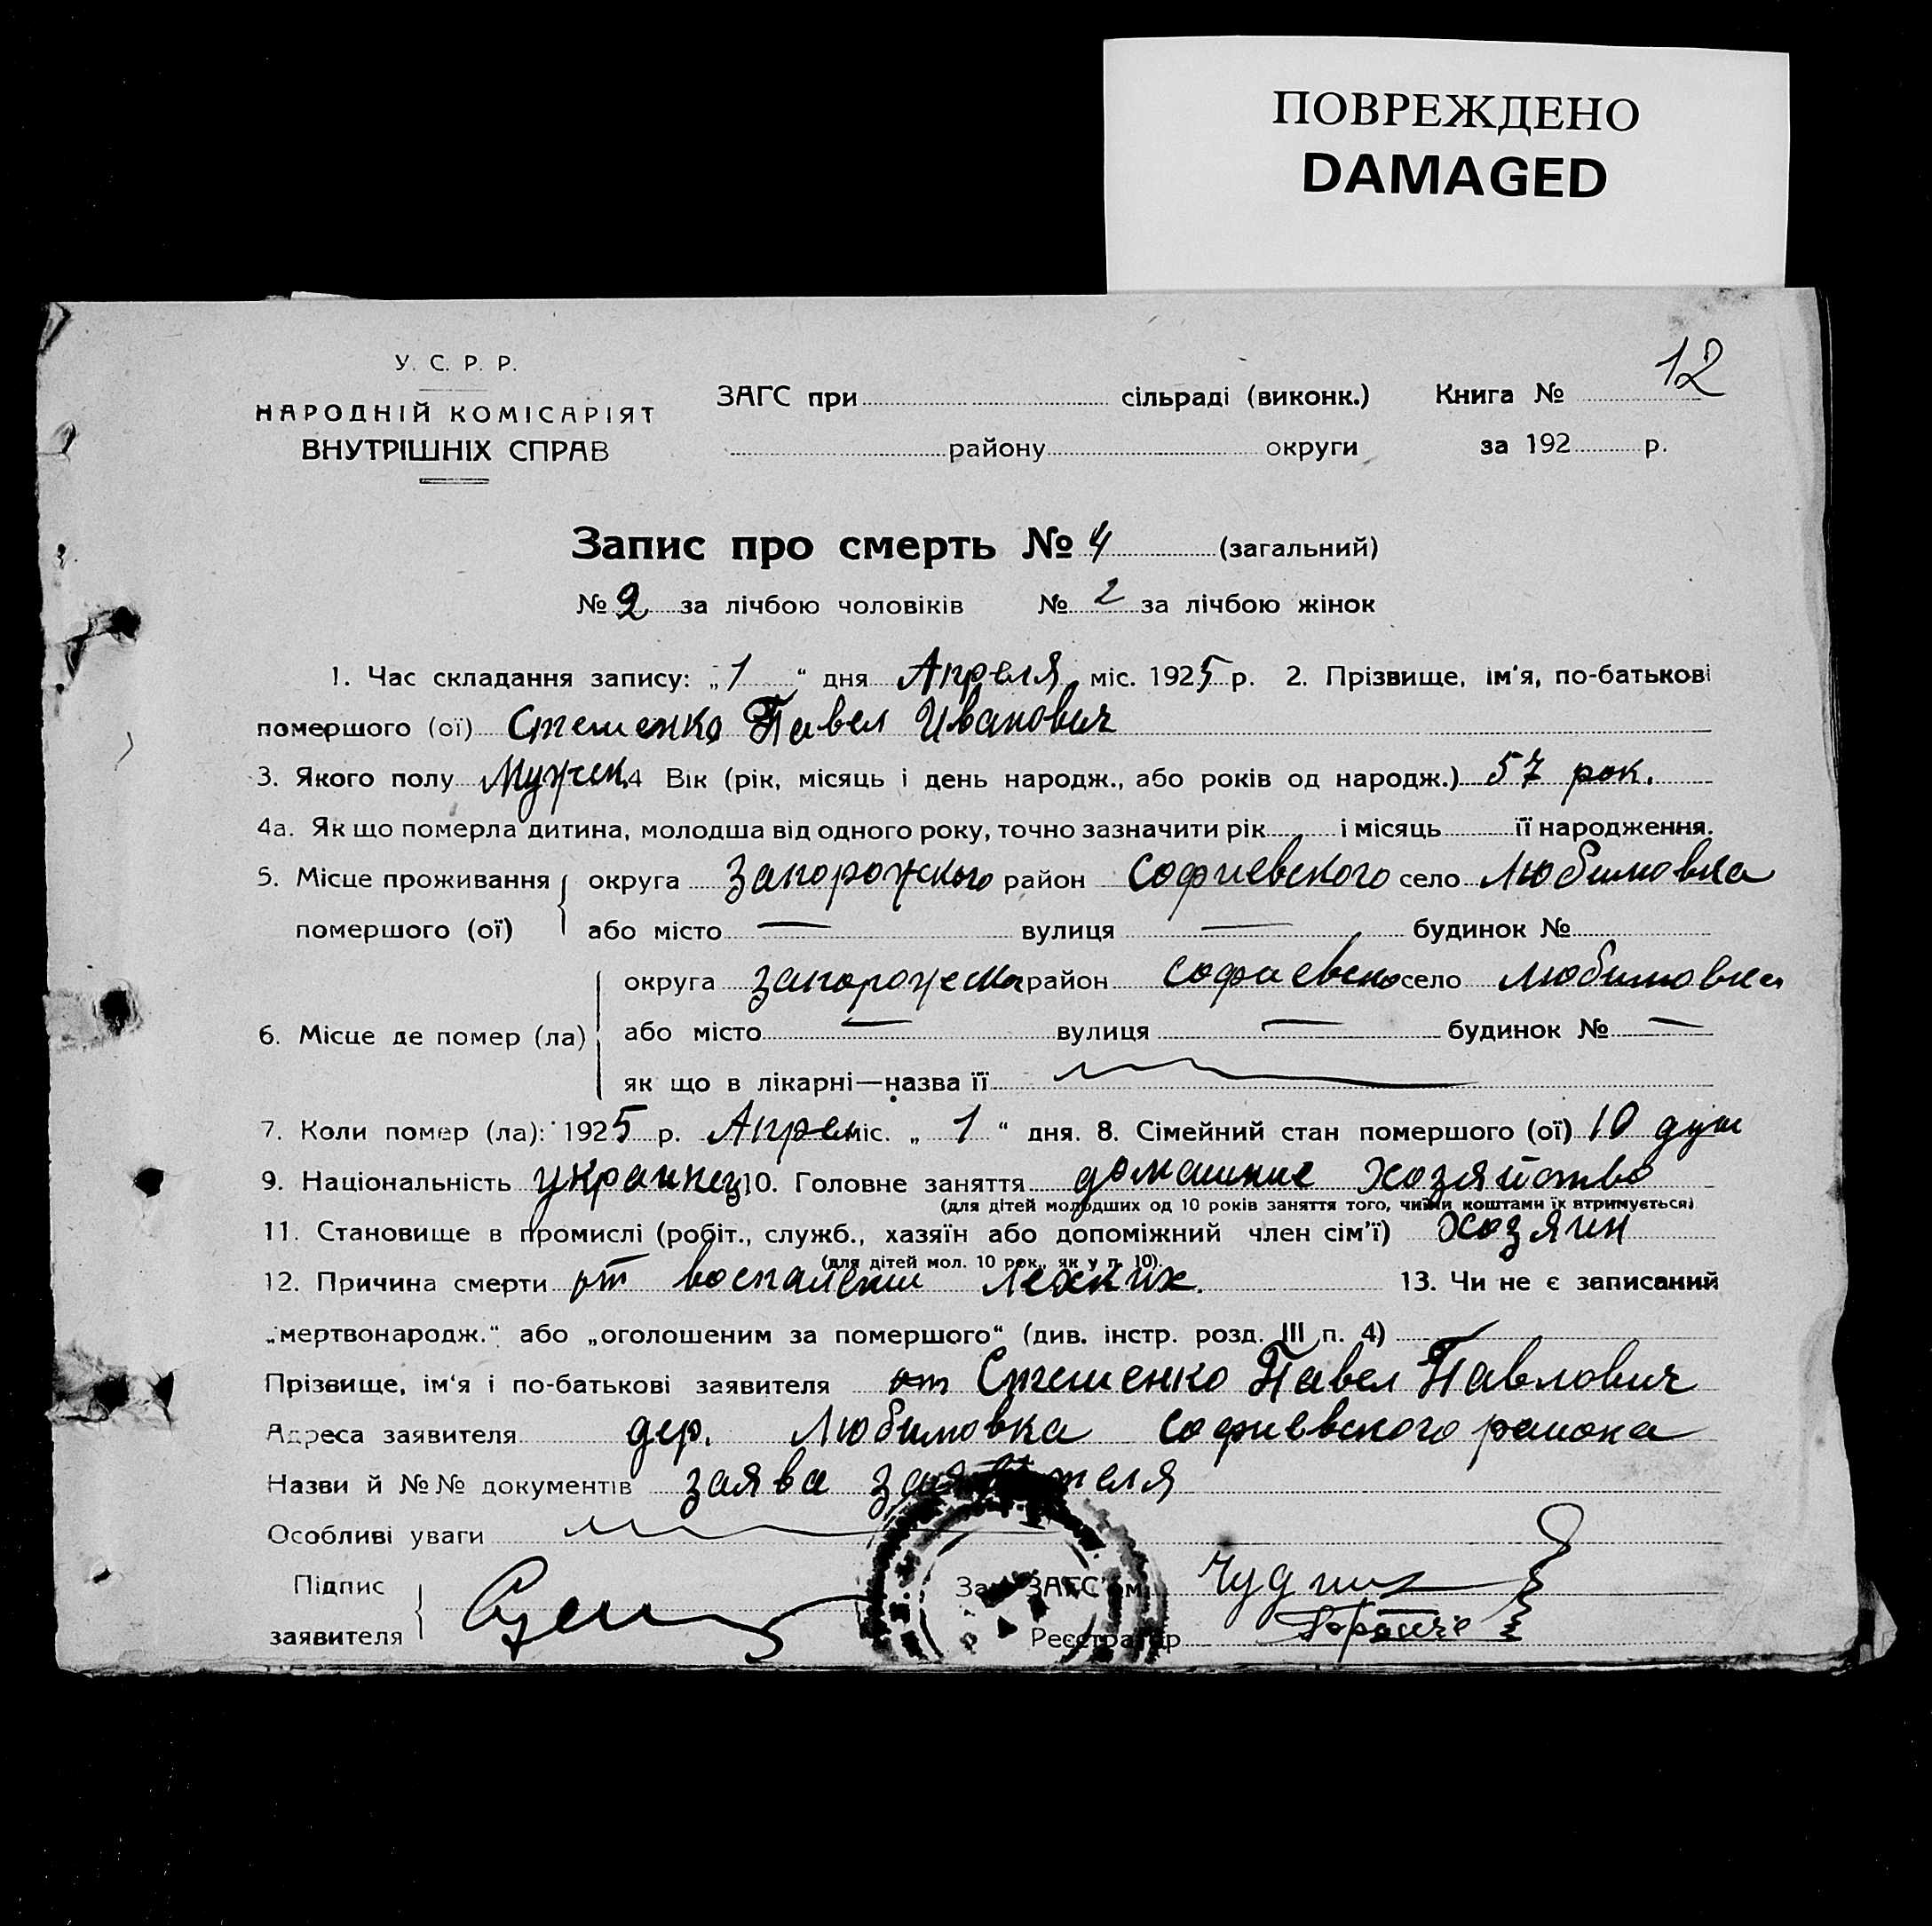 ПОВРЕЖДЕНО
DAMAGED
12
У. С. Р. Р.
НАРОДНІЙ КОМІСАРІЯТ
ВНУТРІШНІХ СПРАВ
ЗАГС при сільраді (виконк.) Книга №
району округи за 192 р.
Запис про смерть № 4 (загальний)
№ 2 за лічбою чоловіків № 2 за лічбою жінок
1. Час складання запису: „1“ дня Апреля міс. 1925 р. 2. Прізвище, ім'я, по-батькові
помершого (ої) Стешенко Павел Иванович
3. Якого полу Мужск 4 Вік (рік, місяць і день народж., або років од народж.) 57 рок.
4а. Як що померла дитина, молодша від одного року, точно зазначити рік і місяць її народження.
5. Місце проживання округа Запорожского район Софиевского село Любимовка
помершого (ої) або місто — вулиця — будинок №
округа запорожска район софиевско село любимовка
6. Місце де помер (ла) або місто — вулиця — будинок № —
як що в лікарні—назва її
7. Коли помер (ла): 1925 р. Апрел міс. „1“ дня. 8. Сімейний стан помершого (ої) 10 душ
9. Національність украинец 10. Головне заняття домашние хозяйство
(для дітей молодших од 10 років заняття того, чиїми коштами їх втримується)
11. Становище в промислі (робіт., служб., хазяїн або допоміжний член сім'ї) хозяин
(для дітей мол. 10 рок., як у п. 10).
12. Причина смерти от воспалении лехких. 13. Чи не є записаний
„мертвонародж.“ або „оголошеним за помершого“ (див. інстр. розд. III п. 4)
Прізвище, ім'я і по-батькові заявителя от Стешенко Павел Павлович
Адреса заявителя дер. Любимовка Софиевского района
Назви й №№ документів заява заявителя
Особливі уваги
Підпис Зав. ЗАГС'ом
заявителя Реєстратор